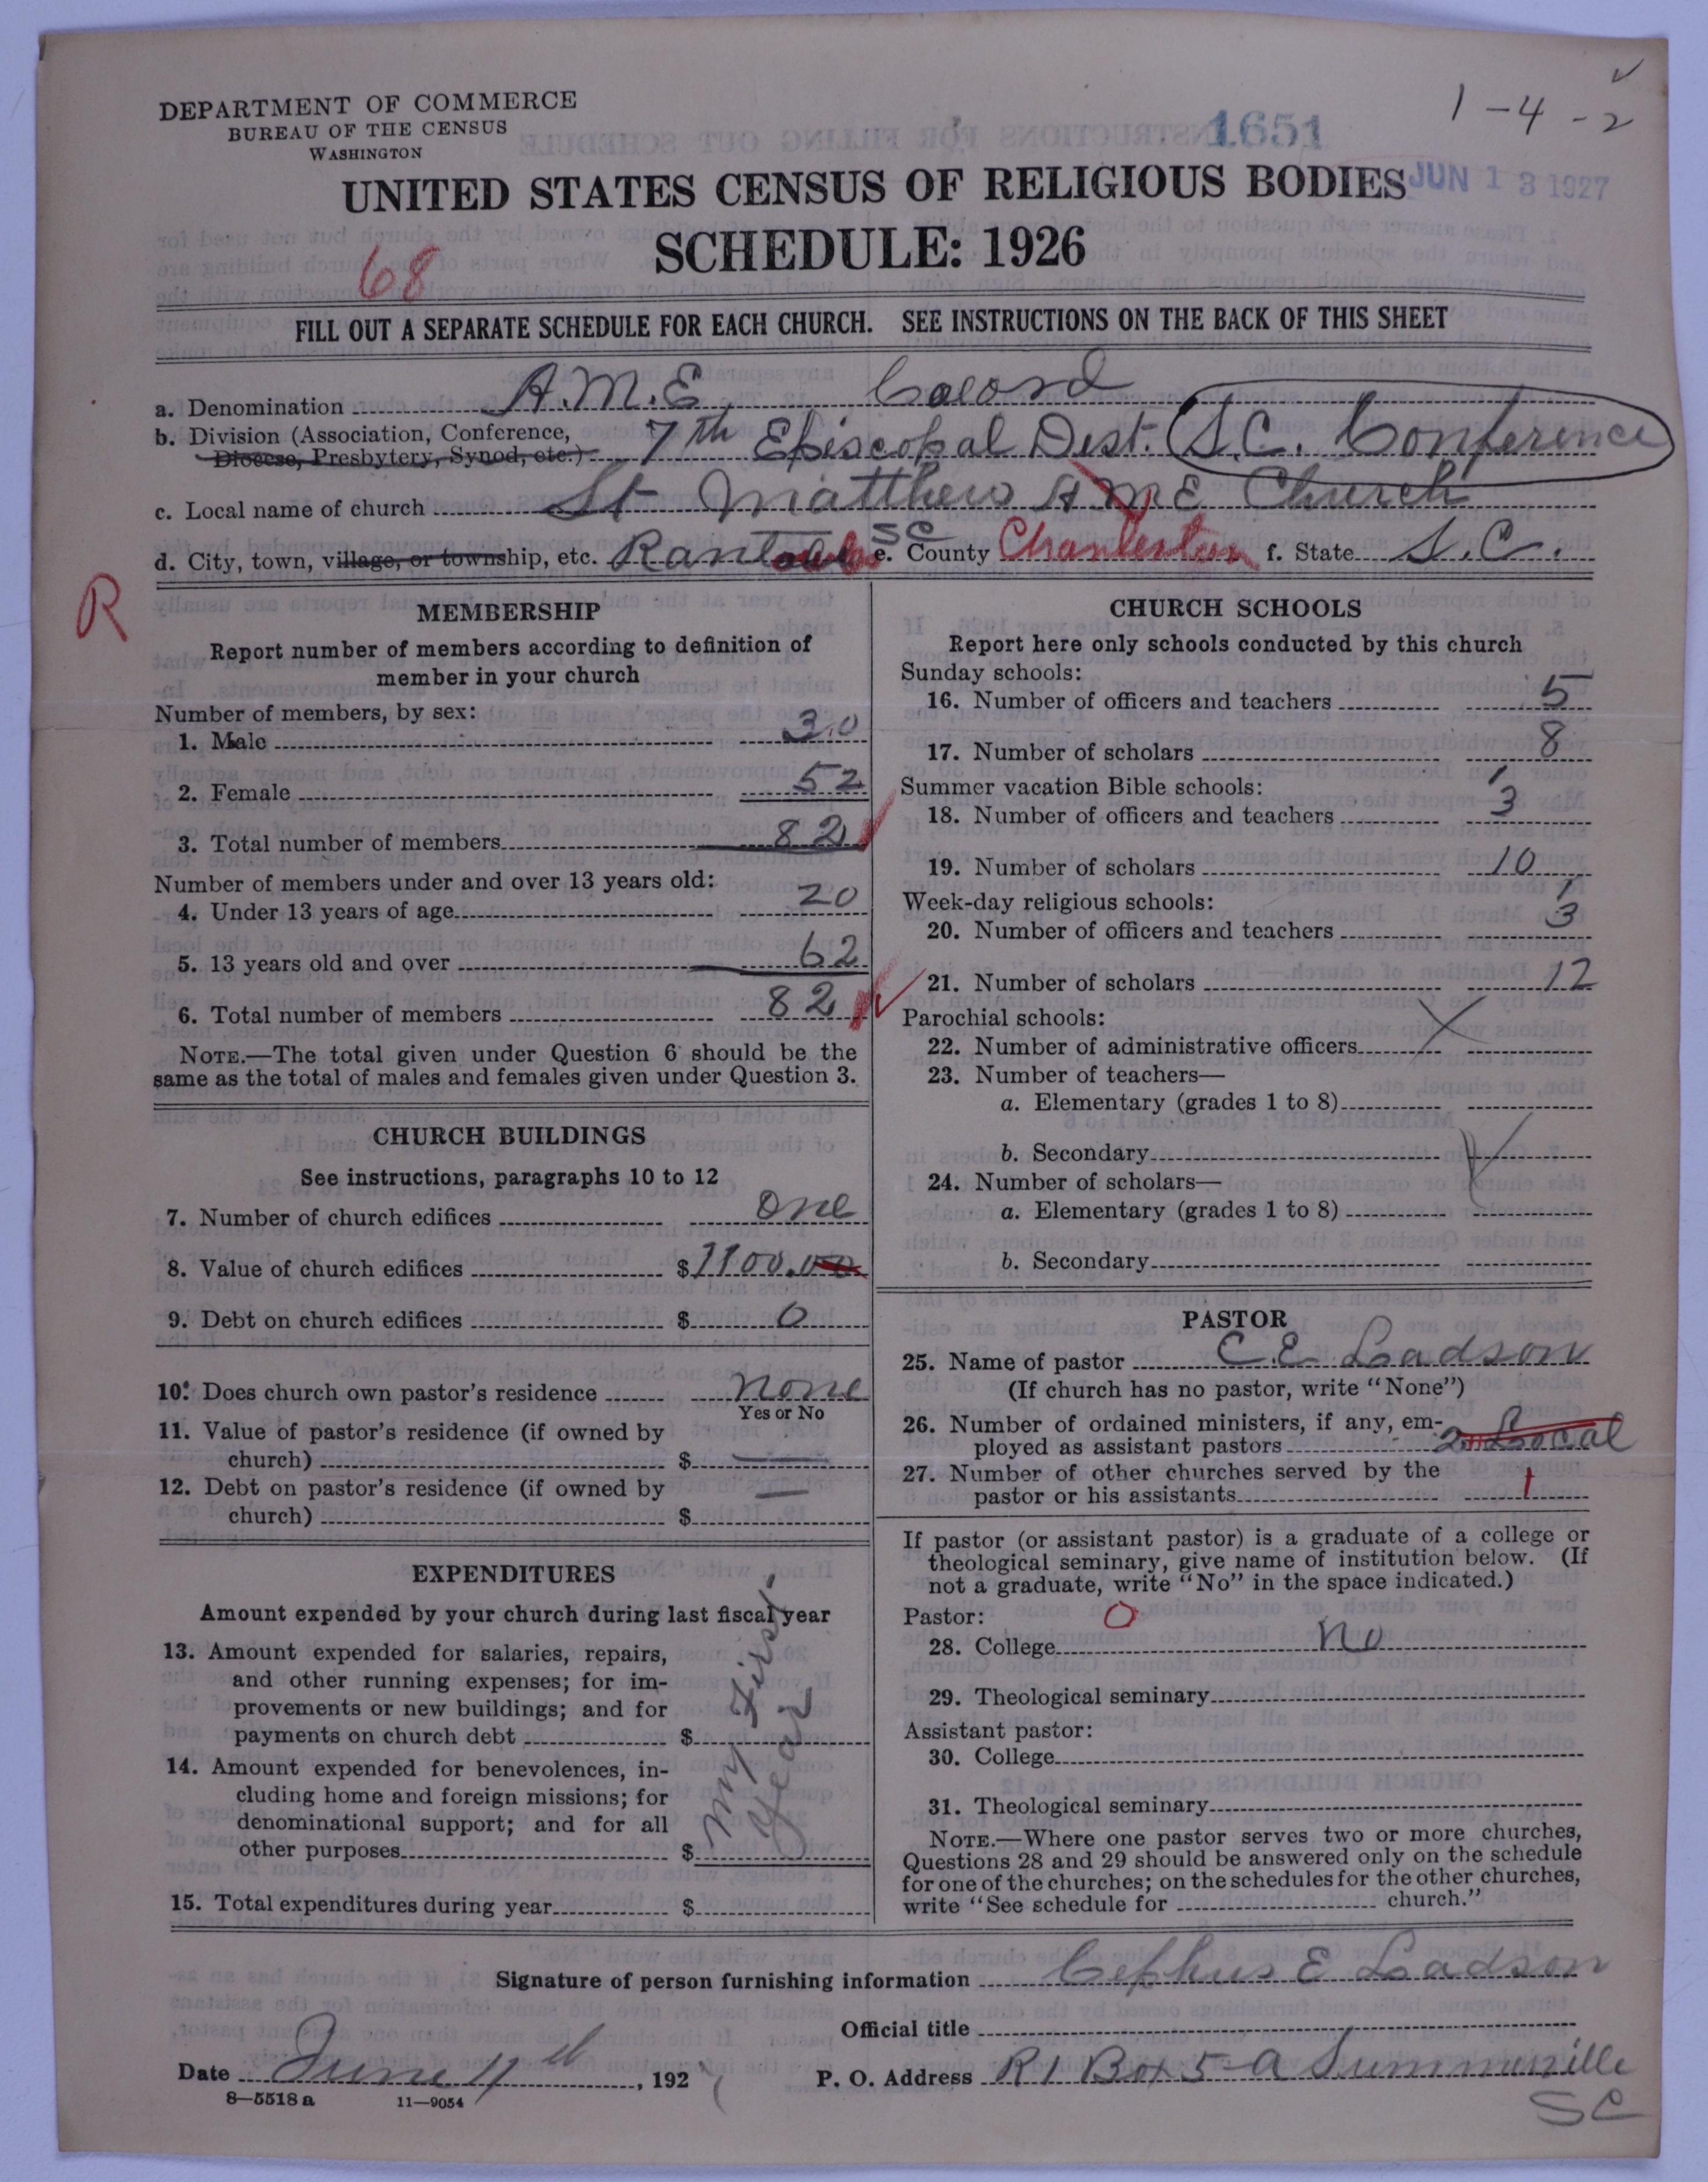 DEPARTMENT OF COMMERCE
BUREAU OF THE CENSUS
WASHINGTON
1651
1-4-2
JUN 13 1927
UNITED STATES CENSUS OF RELIGIOUS BODIES
SCHEDULE: 1926
68
FILL OUT A SEPARATE SCHEDULE FOR EACH CHURCH. SEE INSTRUCTIONS ON THE BACK OF THIS SHEET
a. Denomination A.M.E. Coolord
b. Division (Association, Conference, Diocese, Presbytery, Synod, etc.) 7th Episcopal Dist. S.C. Conference
c. Local name of church St Matthew A M E Church
d. City, town, village, or township, etc. Rantowles SC e. County Charleston f. State S.C.
R
MEMBERSHIP
Report number of members according to definition of member in your church
Number of members, by sex:
1. Male 30
2. Female 52
3. Total number of members 82
Number of members under and over 13 years old:
4. Under 13 years of age 20
5. 13 years old and over 62
6. Total number of members 82
NOTE.—The total given under Question 6 should be the same as the total of males and females given under Question 3.
CHURCH BUILDINGS
See instructions, paragraphs 10 to 12
7. Number of church edifices one
8. Value of church edifices $1100.00
9. Debt on church edifices $ 0
10. Does church own pastor's residence none
Yes or No
11. Value of pastor's residence (if owned by church) $ —
12. Debt on pastor's residence (if owned by church) $ —
EXPENDITURES
Amount expended by your church during last fiscal year
13. Amount expended for salaries, repairs, and other running expenses; for improvements or new buildings; and for payments on church debt $
14. Amount expended for benevolences, including home and foreign missions; for denominational support; and for all other purposes $
my first year
15. Total expenditures during year $
CHURCH SCHOOLS
Report here only schools conducted by this church
Sunday schools:
16. Number of officers and teachers 5
17. Number of scholars 8
Summer vacation Bible schools:
18. Number of officers and teachers 3
19. Number of scholars 10
Week-day religious schools:
20. Number of officers and teachers 3
21. Number of scholars 12
Parochial schools:
22. Number of administrative officers
23. Number of teachers—
a. Elementary (grades 1 to 8)
b. Secondary
24. Number of scholars—
a. Elementary (grades 1 to 8)
b. Secondary
PASTOR
25. Name of pastor C.E. Ladson
(If church has no pastor, write "None")
26. Number of ordained ministers, if any, employed as assistant pastors 2 Local
27. Number of other churches served by the pastor or his assistants 1
If pastor (or assistant pastor) is a graduate of a college or theological seminary, give name of institution below. (If not a graduate, write "No" in the space indicated.)
Pastor: 0
28. College No
29. Theological seminary
Assistant pastor:
30. College
31. Theological seminary
NOTE.—Where one pastor serves two or more churches, Questions 28 and 29 should be answered only on the schedule for one of the churches; on the schedules for the other churches, write "See schedule for church."
Signature of person furnishing information Cephus E Ladson
Official title
Date June 11th, 1927
P. O. Address R1 Box 5-a Summerville SC
8—5518 a 11—9054